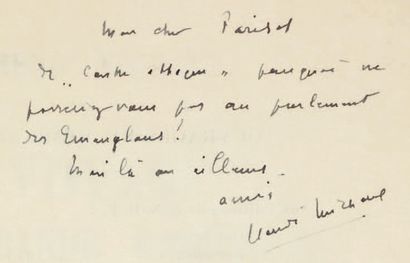 Mon cher Parisot
De "Contre attaque" pourquoi ne
passeriez vous pas au parlement
des Emanglons!
Mais là ou ailleurs.
amis
Henri Michaux